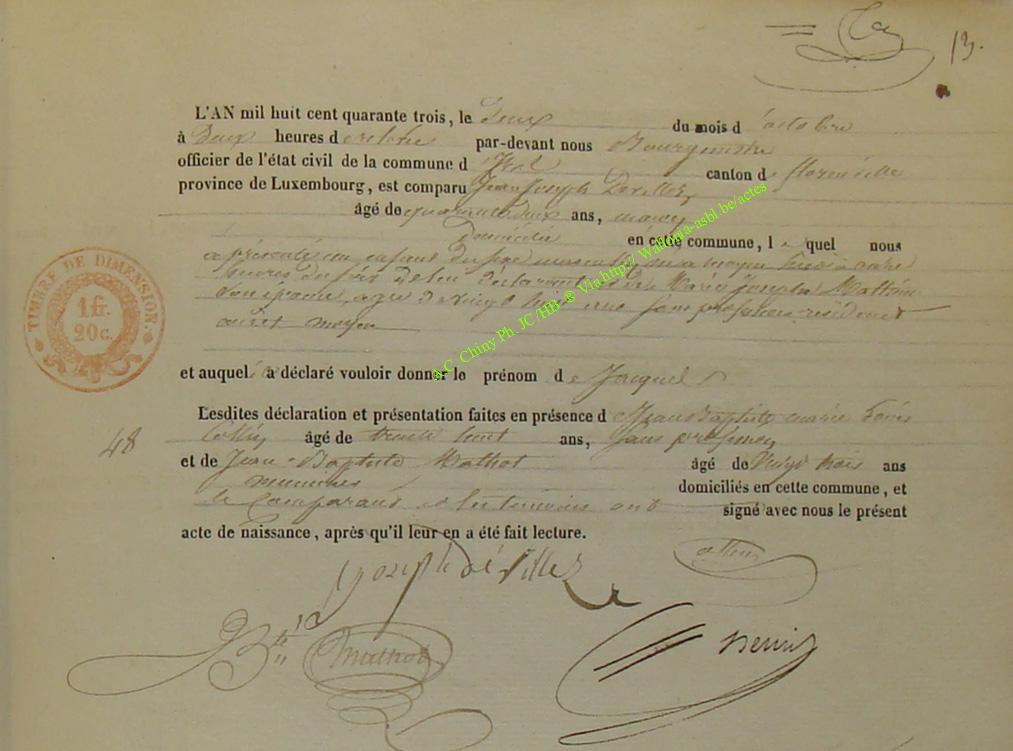 13.
L'AN mil huit cent quarante trois, le deux du mois d'octobre
à deux heures de relevée par-devant nous Bourgmestre
officier de l'état civil de la commune d'Izel canton de florenville
province de Luxembourg, est comparu Jean Joseph Devillez
âgé de quarante deux ans,
Domicilié en cette commune, le quel nous
a présenté un enfant du sexe masculin né a moyen
heures du soir de lui déclarant et de Marie joseph Mathieu
Son épouse, agée de vingt huit ans sans profession résident
audit moyen
et auquel il a déclaré vouloir donner le prénom de Jacques
Lesdites déclaration et présentation faites en présence de Jean Baptiste marie
âgé de trente huit ans, Sans profession
et de Jean-Baptiste Mathot âgé de Vingt trois ans
48
meunier domiciliés en cette commune, et
le Comparant et les temoins ont signé avec nous le présent
acte de naissance, après qu'il leur en a été fait lecture.
TIMBRE DE DIMENSION.
1 fr.
20 c.
A.C. Chiny Ph. JC /HB ® Via http:// Wallonia-asbl.be/actes
Joseph déVillez
J Bte Mathot